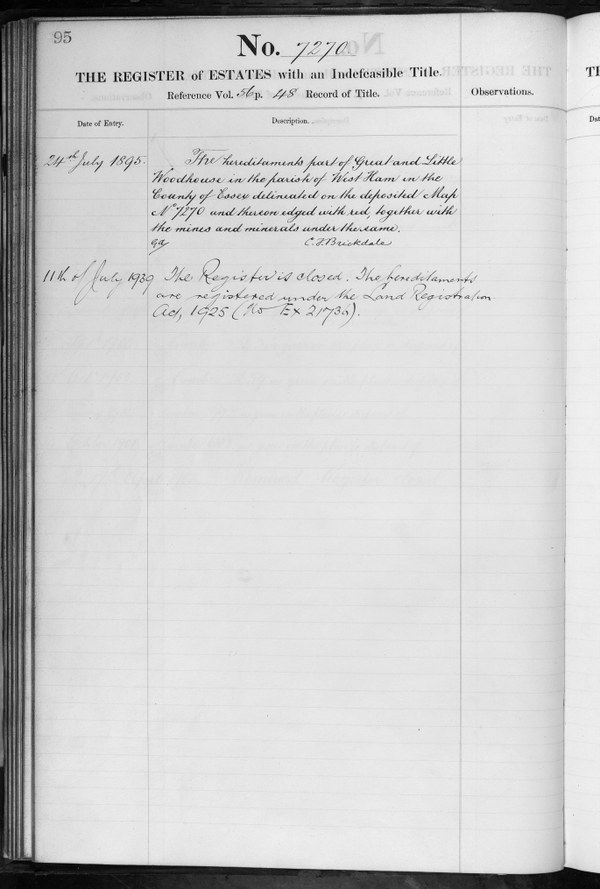 95
No. 7270
THE REGISTER of ESTATES with an Indefeasible Title.
Reference Vol. 56 p. 48 Record of Title.
Observations.
Date of Entry.
Description.
24th July 1895.
The hereditaments part of Great and Little
Woodhouse in the parish of West Ham in the
County of Essex delineated on the deposited Map
No 7270 and thereon edged with red, together with
the mines and minerals under the same.
C.F. Brickdale
11th of July 1939
The Register is closed. The hereditaments
are registered under the Land Registration
Act, 1925 (No Ex 2173).